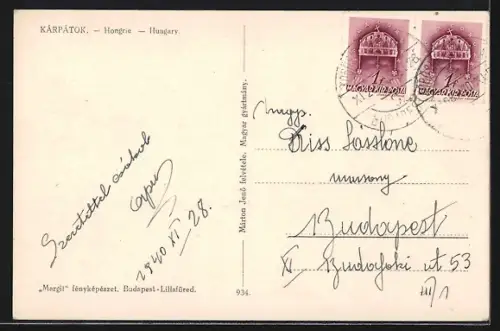 KÁRPÁTOK. – Hongrie – Hungary.
Szeretettel csókol
Apu
1940 XI 28.
„Mergit" fényképészet. Budapest-Lillafüred.
934.
Márton Jenő felvétele. Magyar gyártmány.
1f
MAGYAR KIR. POSTA
1f
MAGYAR KIR. POSTA
Nagys.
Kiss Lászlóné
Budapest
XI Budafoki út 53
III/1